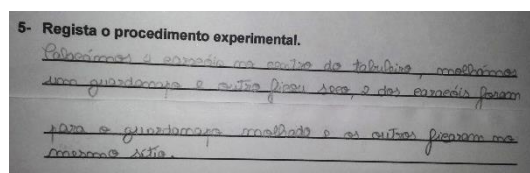 5- Regista o procedimento experimental.
4 caracóis no centro do tabuleiro, molhámos
um guardanapo e outro ficou seco, 2 dos caracóis foram
para o guardanapo molhado e os outros ficaram no
mesmo sítio.